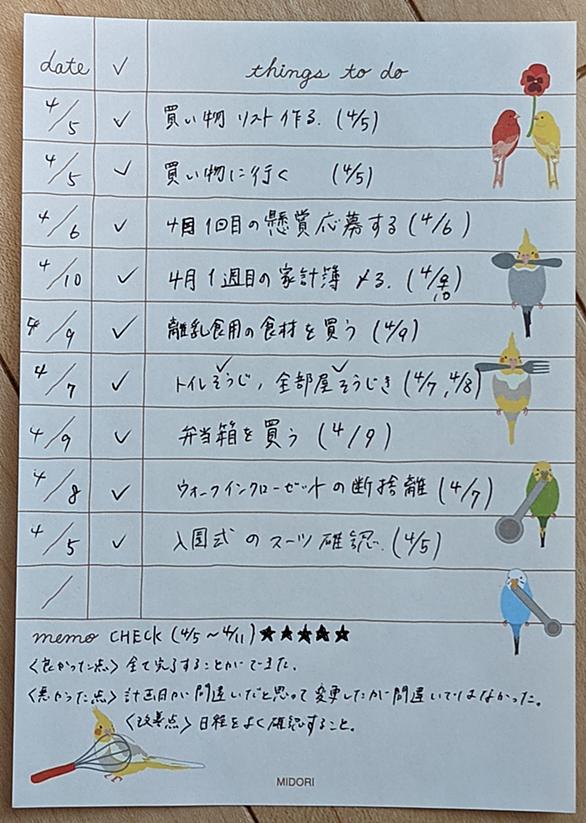 date ✓ things to do
4/5 ✓ 買い物リスト作る. (4/5)
4/5 ✓ 買い物に行く (4/5)
4/6 ✓ 4月1回目の懸賞応募する (4/6)
4/10 ✓ 4月1週目の家計簿〆る. (4/10)
4/9 ✓ 離乳食用の食材を買う (4/9)
4/7 ✓ トイレそうじ, 全部屋そうじき (4/7, 4/8)
4/9 ✓ 弁当箱を買う (4/9)
4/8 ✓ ウォークインクローゼットの断捨離 (4/7)
4/5 ✓ 入園式のスーツ確認. (4/5)
/
memo CHECK (4/5~4/11)★★★★★
〈良かった点〉全て完了することができた.
〈悪かった点〉計画日が間違いだと思って変更したが間違いではなかった。
〈改善点〉日程をよく確認すること。
MIDORI